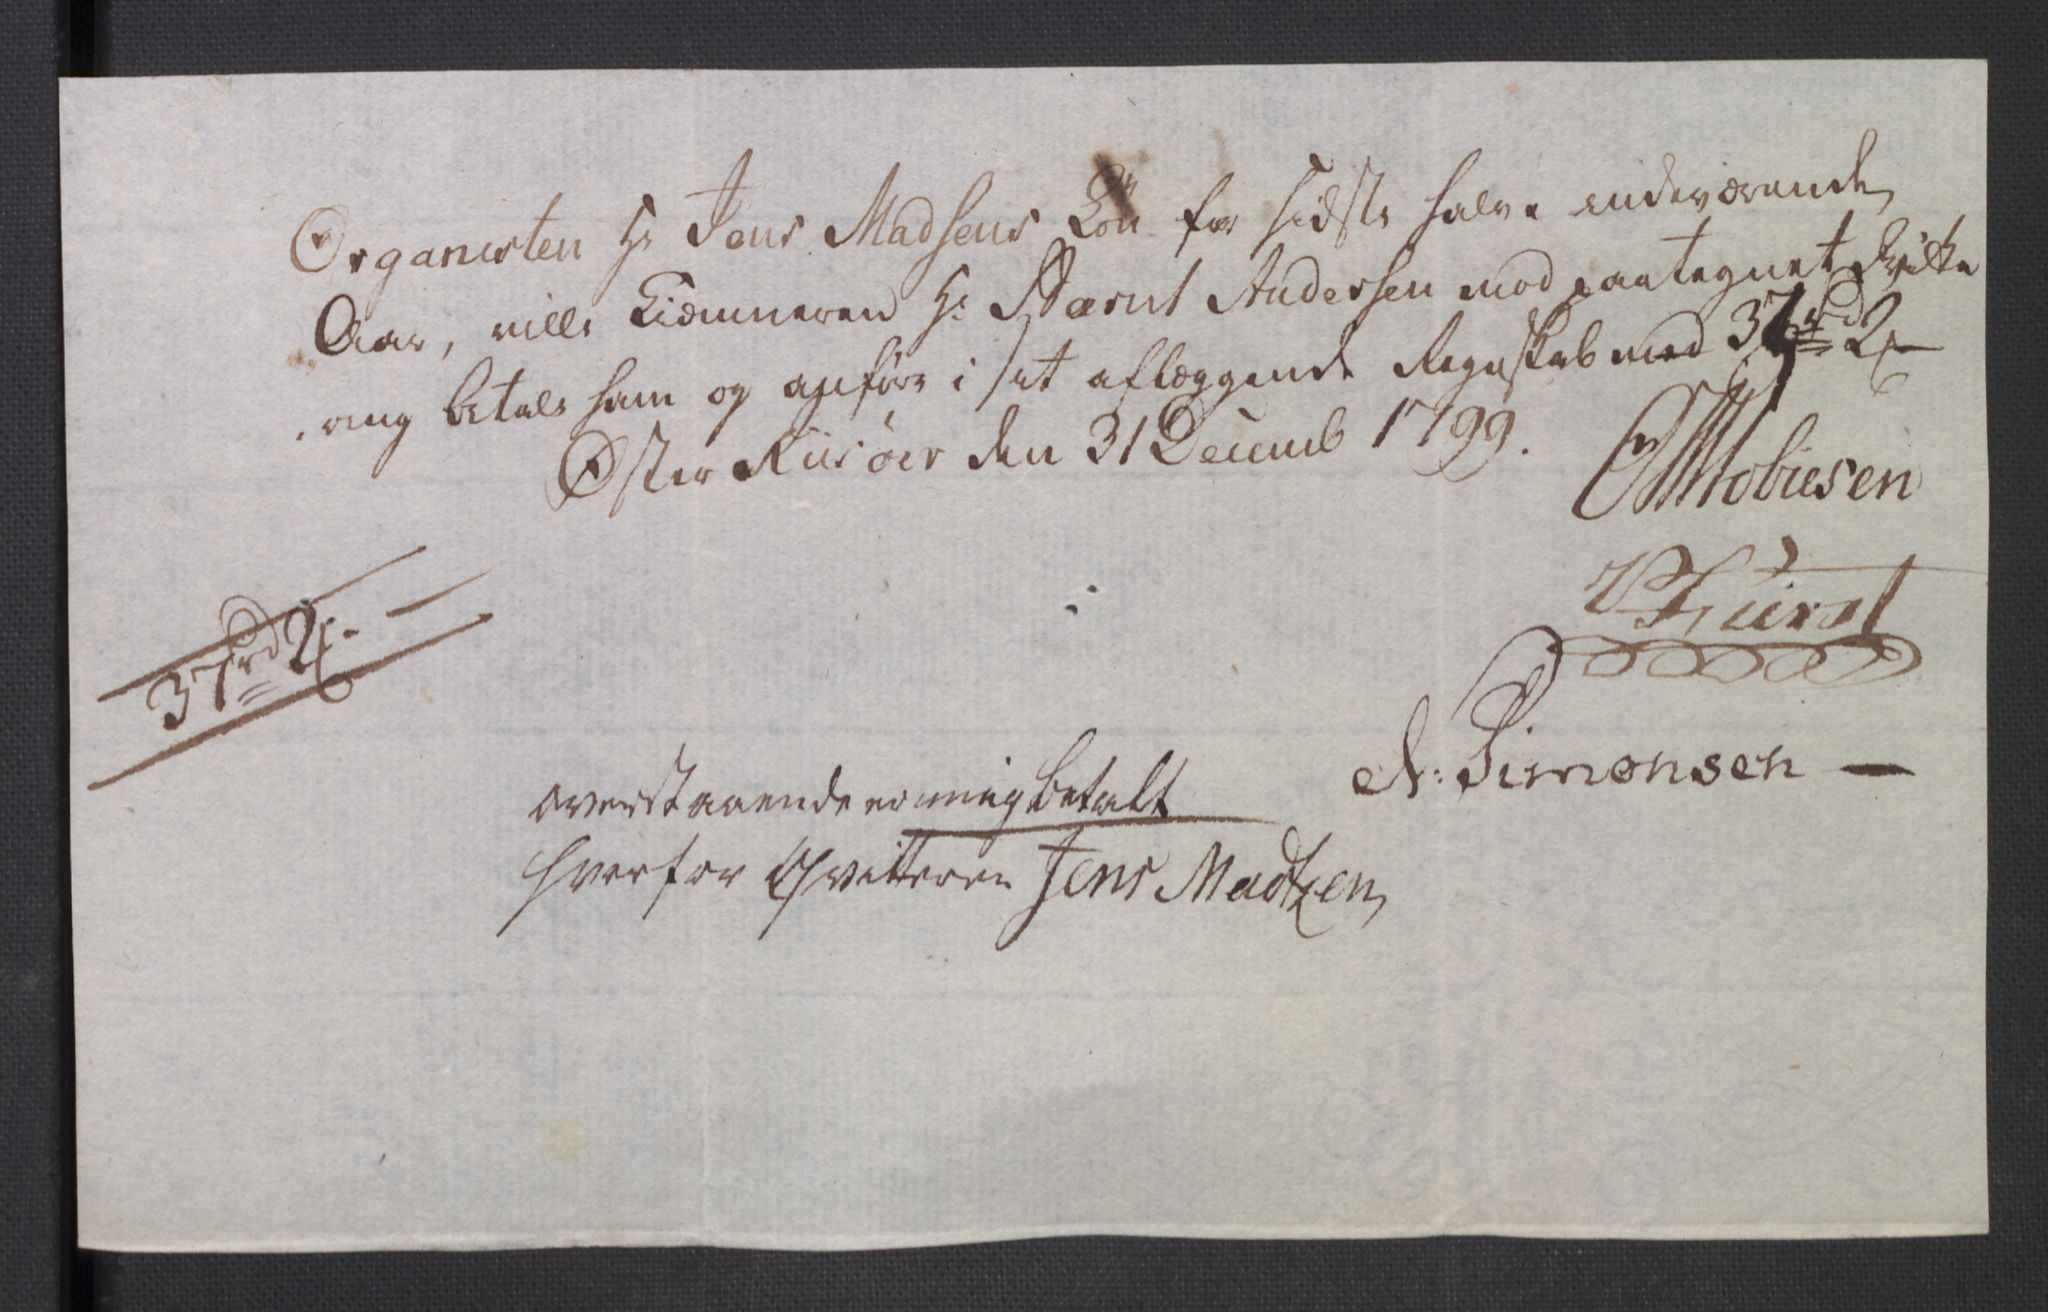 Organisten Hr Jens Madsens Lön for sidste halve indeværende
Aar, ville Kiæmneren Hr: Bærnt Andersen mod paategnet Qvitte
ring betale ham og anføre i sit aflæggende Regnskab med 37rd 2
Øster Riisøer den 31 Decemb 1799.
Mobiesen
Fürst
37rd 2
N: Simonsen
overstaaende er mig betalt
hvorfor Qvitteren Jens Madtzen